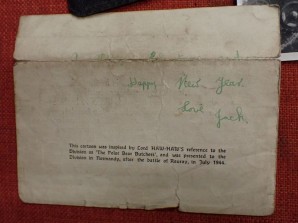 Happy New Year
love Jack.
This cartoon was inspired by Lord HAW-HAW'S reference to the
Division as 'The Polar Bear Butchers', and was presented to the
Division in Normandy, after the battle of Rauray, in July 1944.